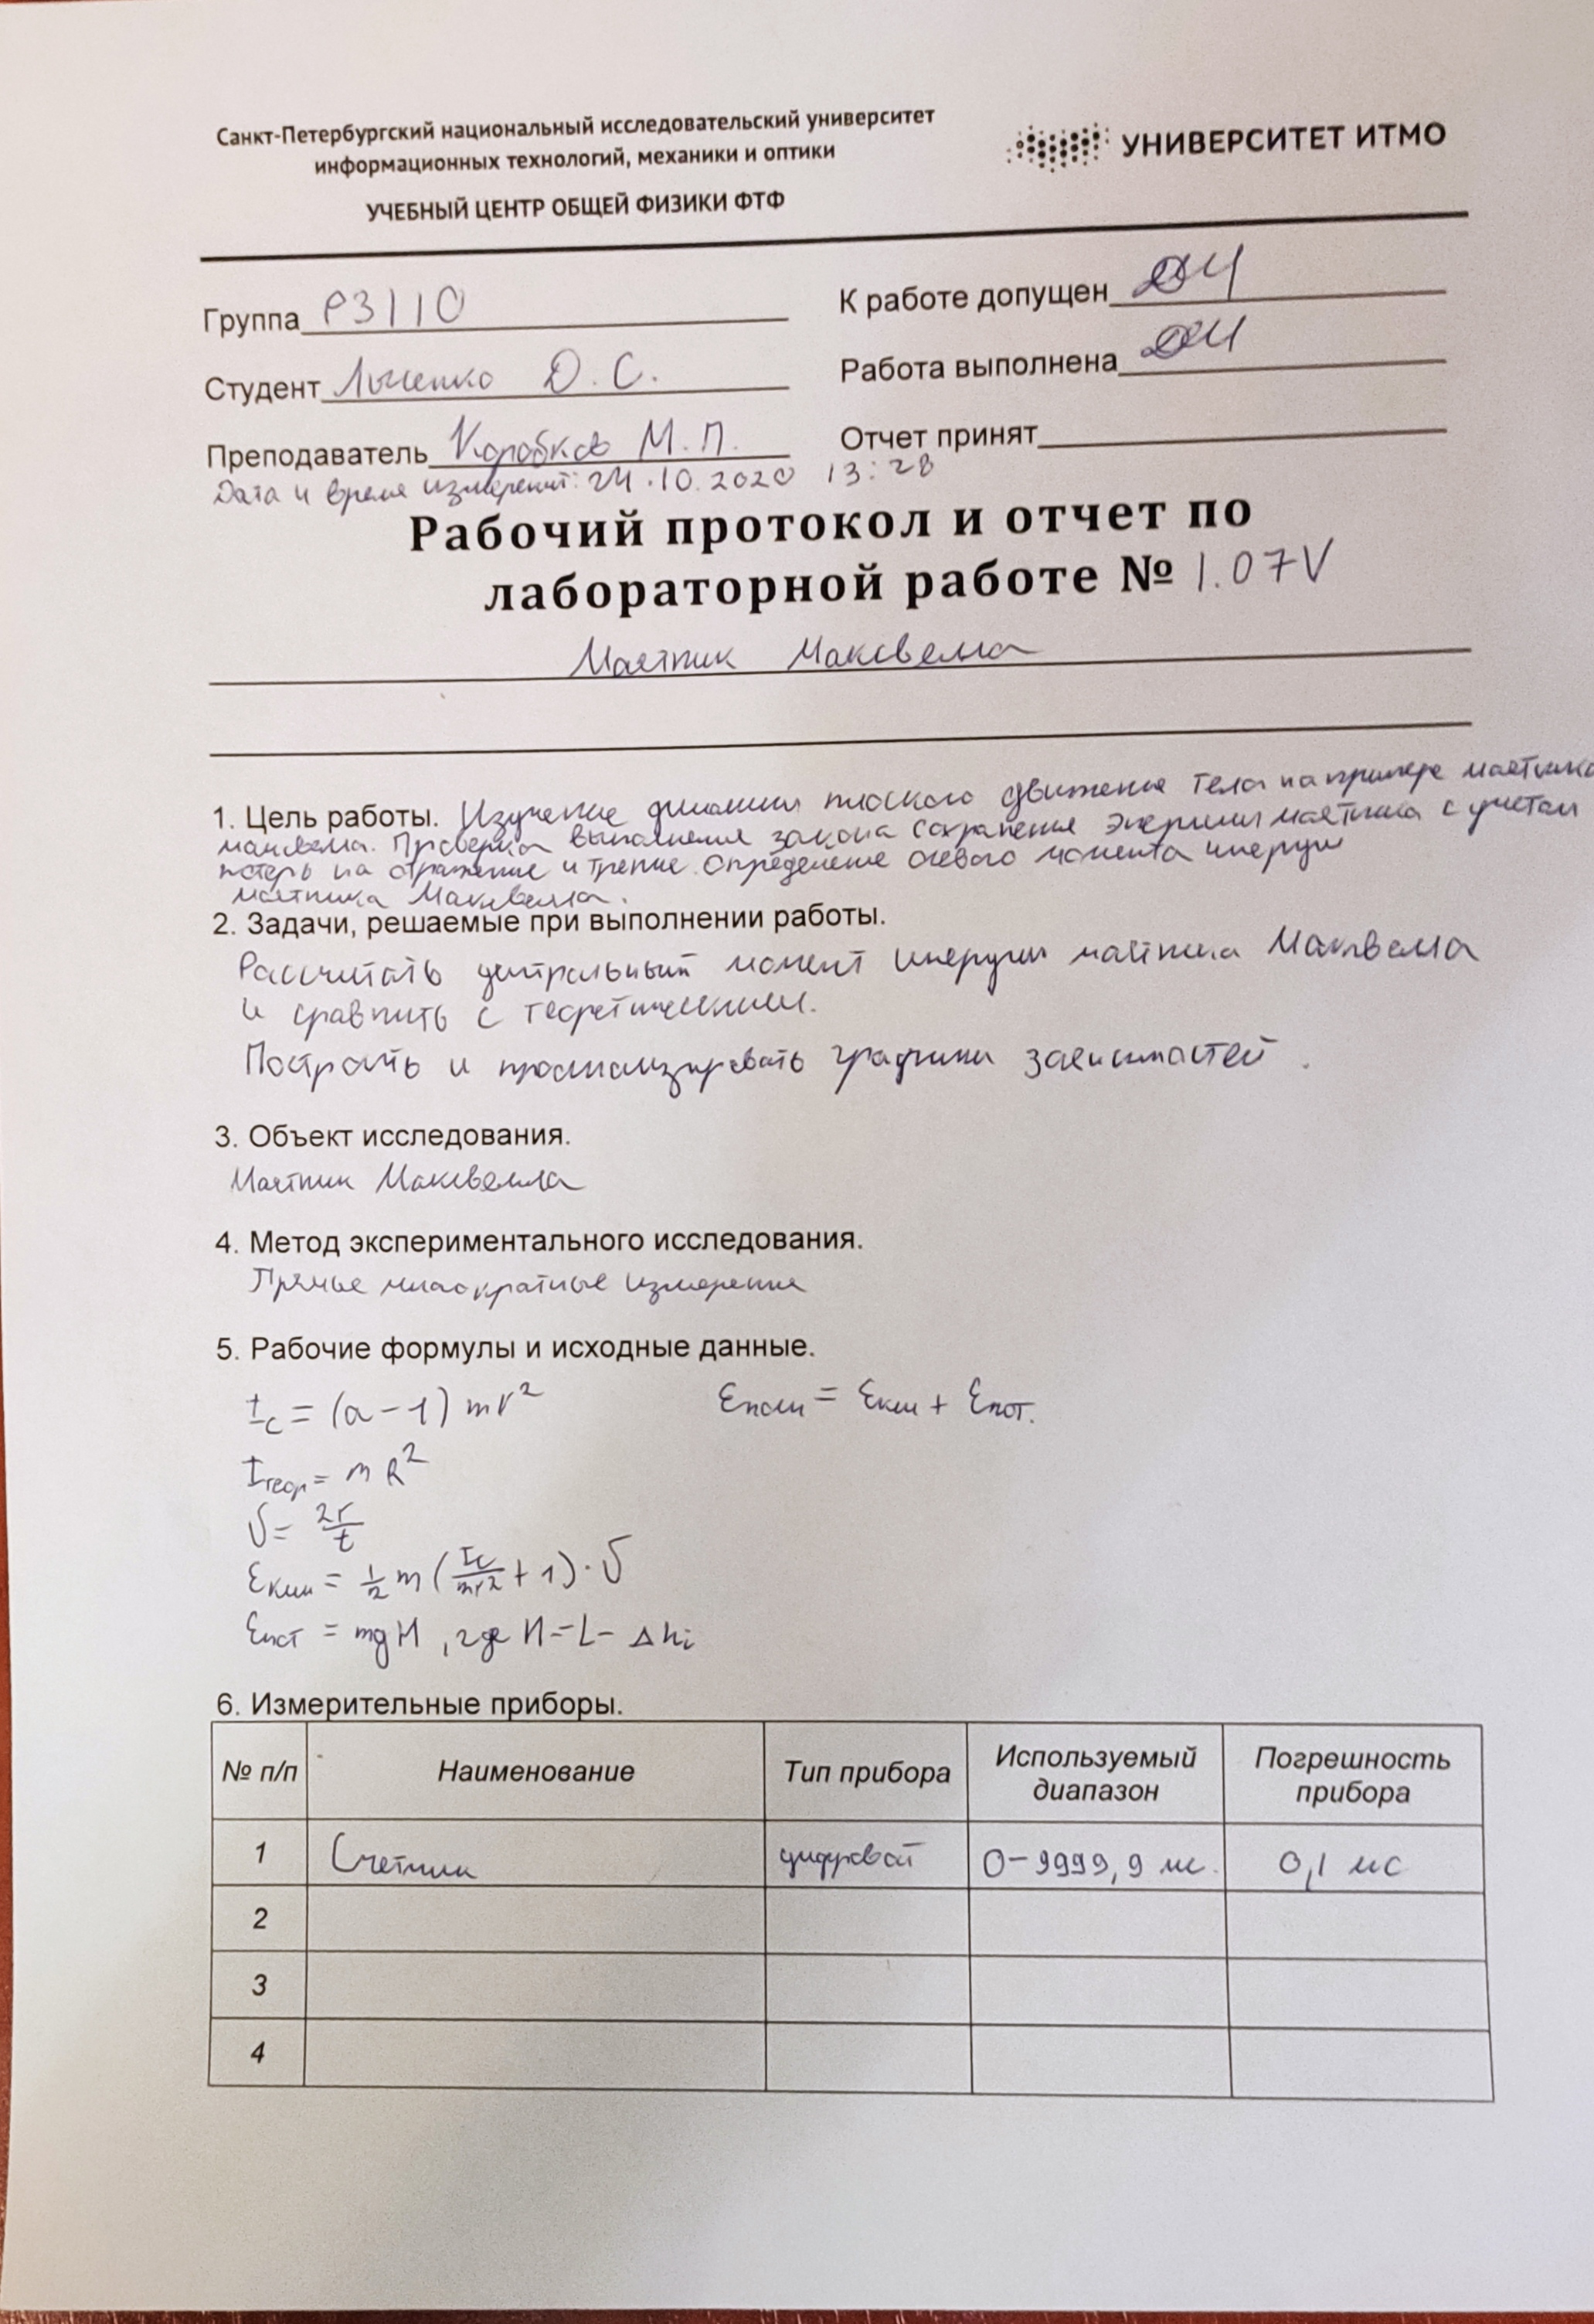 Санкт-Петербургский национальный исследовательский университет
информационных технологий, механики и оптики
УЧЕБНЫЙ ЦЕНТР ОБЩЕЙ ФИЗИКИ ФТФ
УНИВЕРСИТЕТ ИТМО
Группа P3110
К работе допущен
Студент Лысенко Д. С.
Работа выполнена
Преподаватель Коробков М. П.
Отчет принят
Дата и время измерений: 24.10.2020 13:28
Рабочий протокол и отчет по
лабораторной работе № 1.07V
Маятник Максвелла
1. Цель работы. Изучение динамики плоского движения тела на примере маятника
максвелла. Проверка выполнения закона сохранения энергии маятника с учетом
потерь на отражение и трение. Определение осевого момента инерции
маятника Максвелла.
2. Задачи, решаемые при выполнении работы.
Рассчитать центральный момент инерции маятника Максвелла
и сравнить с теоретическим.
Построить и проанализировать графики зависимостей.
3. Объект исследования.
Маятник Максвелла
4. Метод экспериментального исследования.
Прямые многократные измерения
5. Рабочие формулы и исходные данные.
I_c = (a − 1) mr² Eполн = Eкин + Eпот.
Iтеор = m R²
V = 2r/t
Eкин = 1/2 m (I_c/mr² + 1) · V
Eпот = mgH, где H = L − Δhi
6. Измерительные приборы.
№ п/п Наименование Тип прибора Используемый диапазон Погрешность прибора
1 Счетчик цифровой 0−9999,9 мс. 0,1 мс
2
3
4